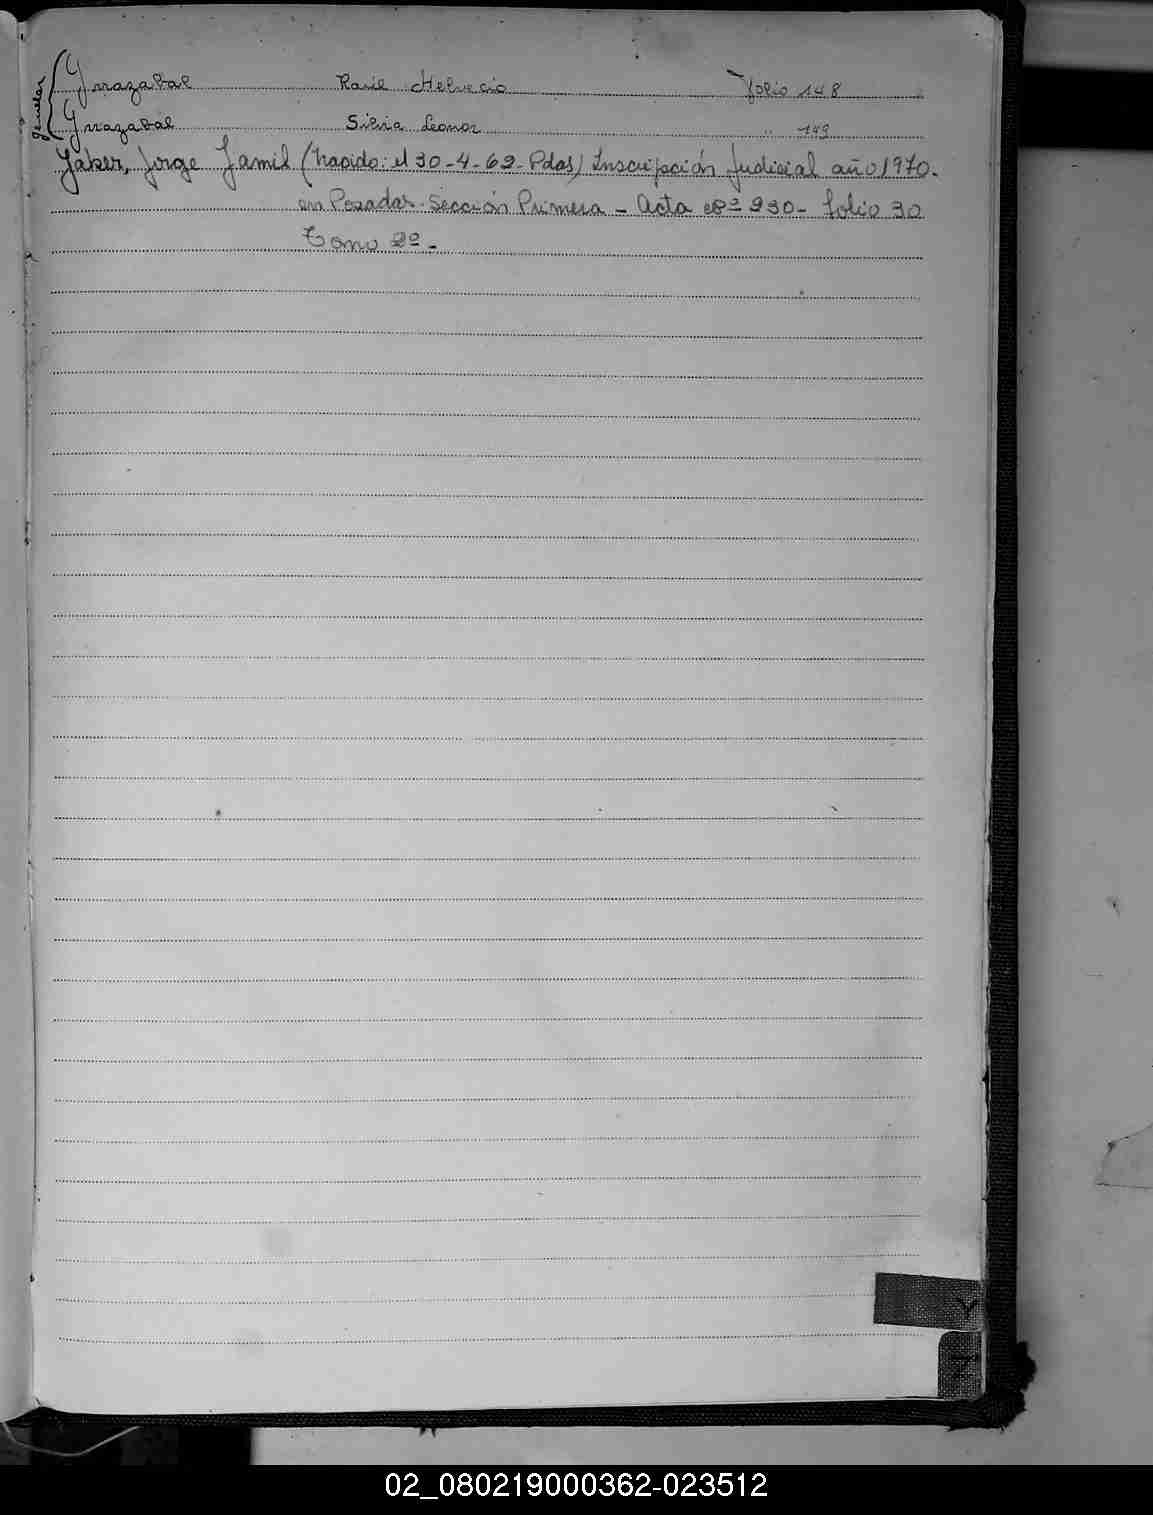 Yrrazabal Raúl Helvecio Folio 148
Yrrazabal Silvia Leonor " 149
Yaker, Jorge Jamil (nacido: el 30-4-62- Pdas) Inscripción Judicial año 1970.
en Posadas. Sección Primera - Acta Nº 930- folio 30
Tomo 2º -
Y
Z
02_080219000362-023512